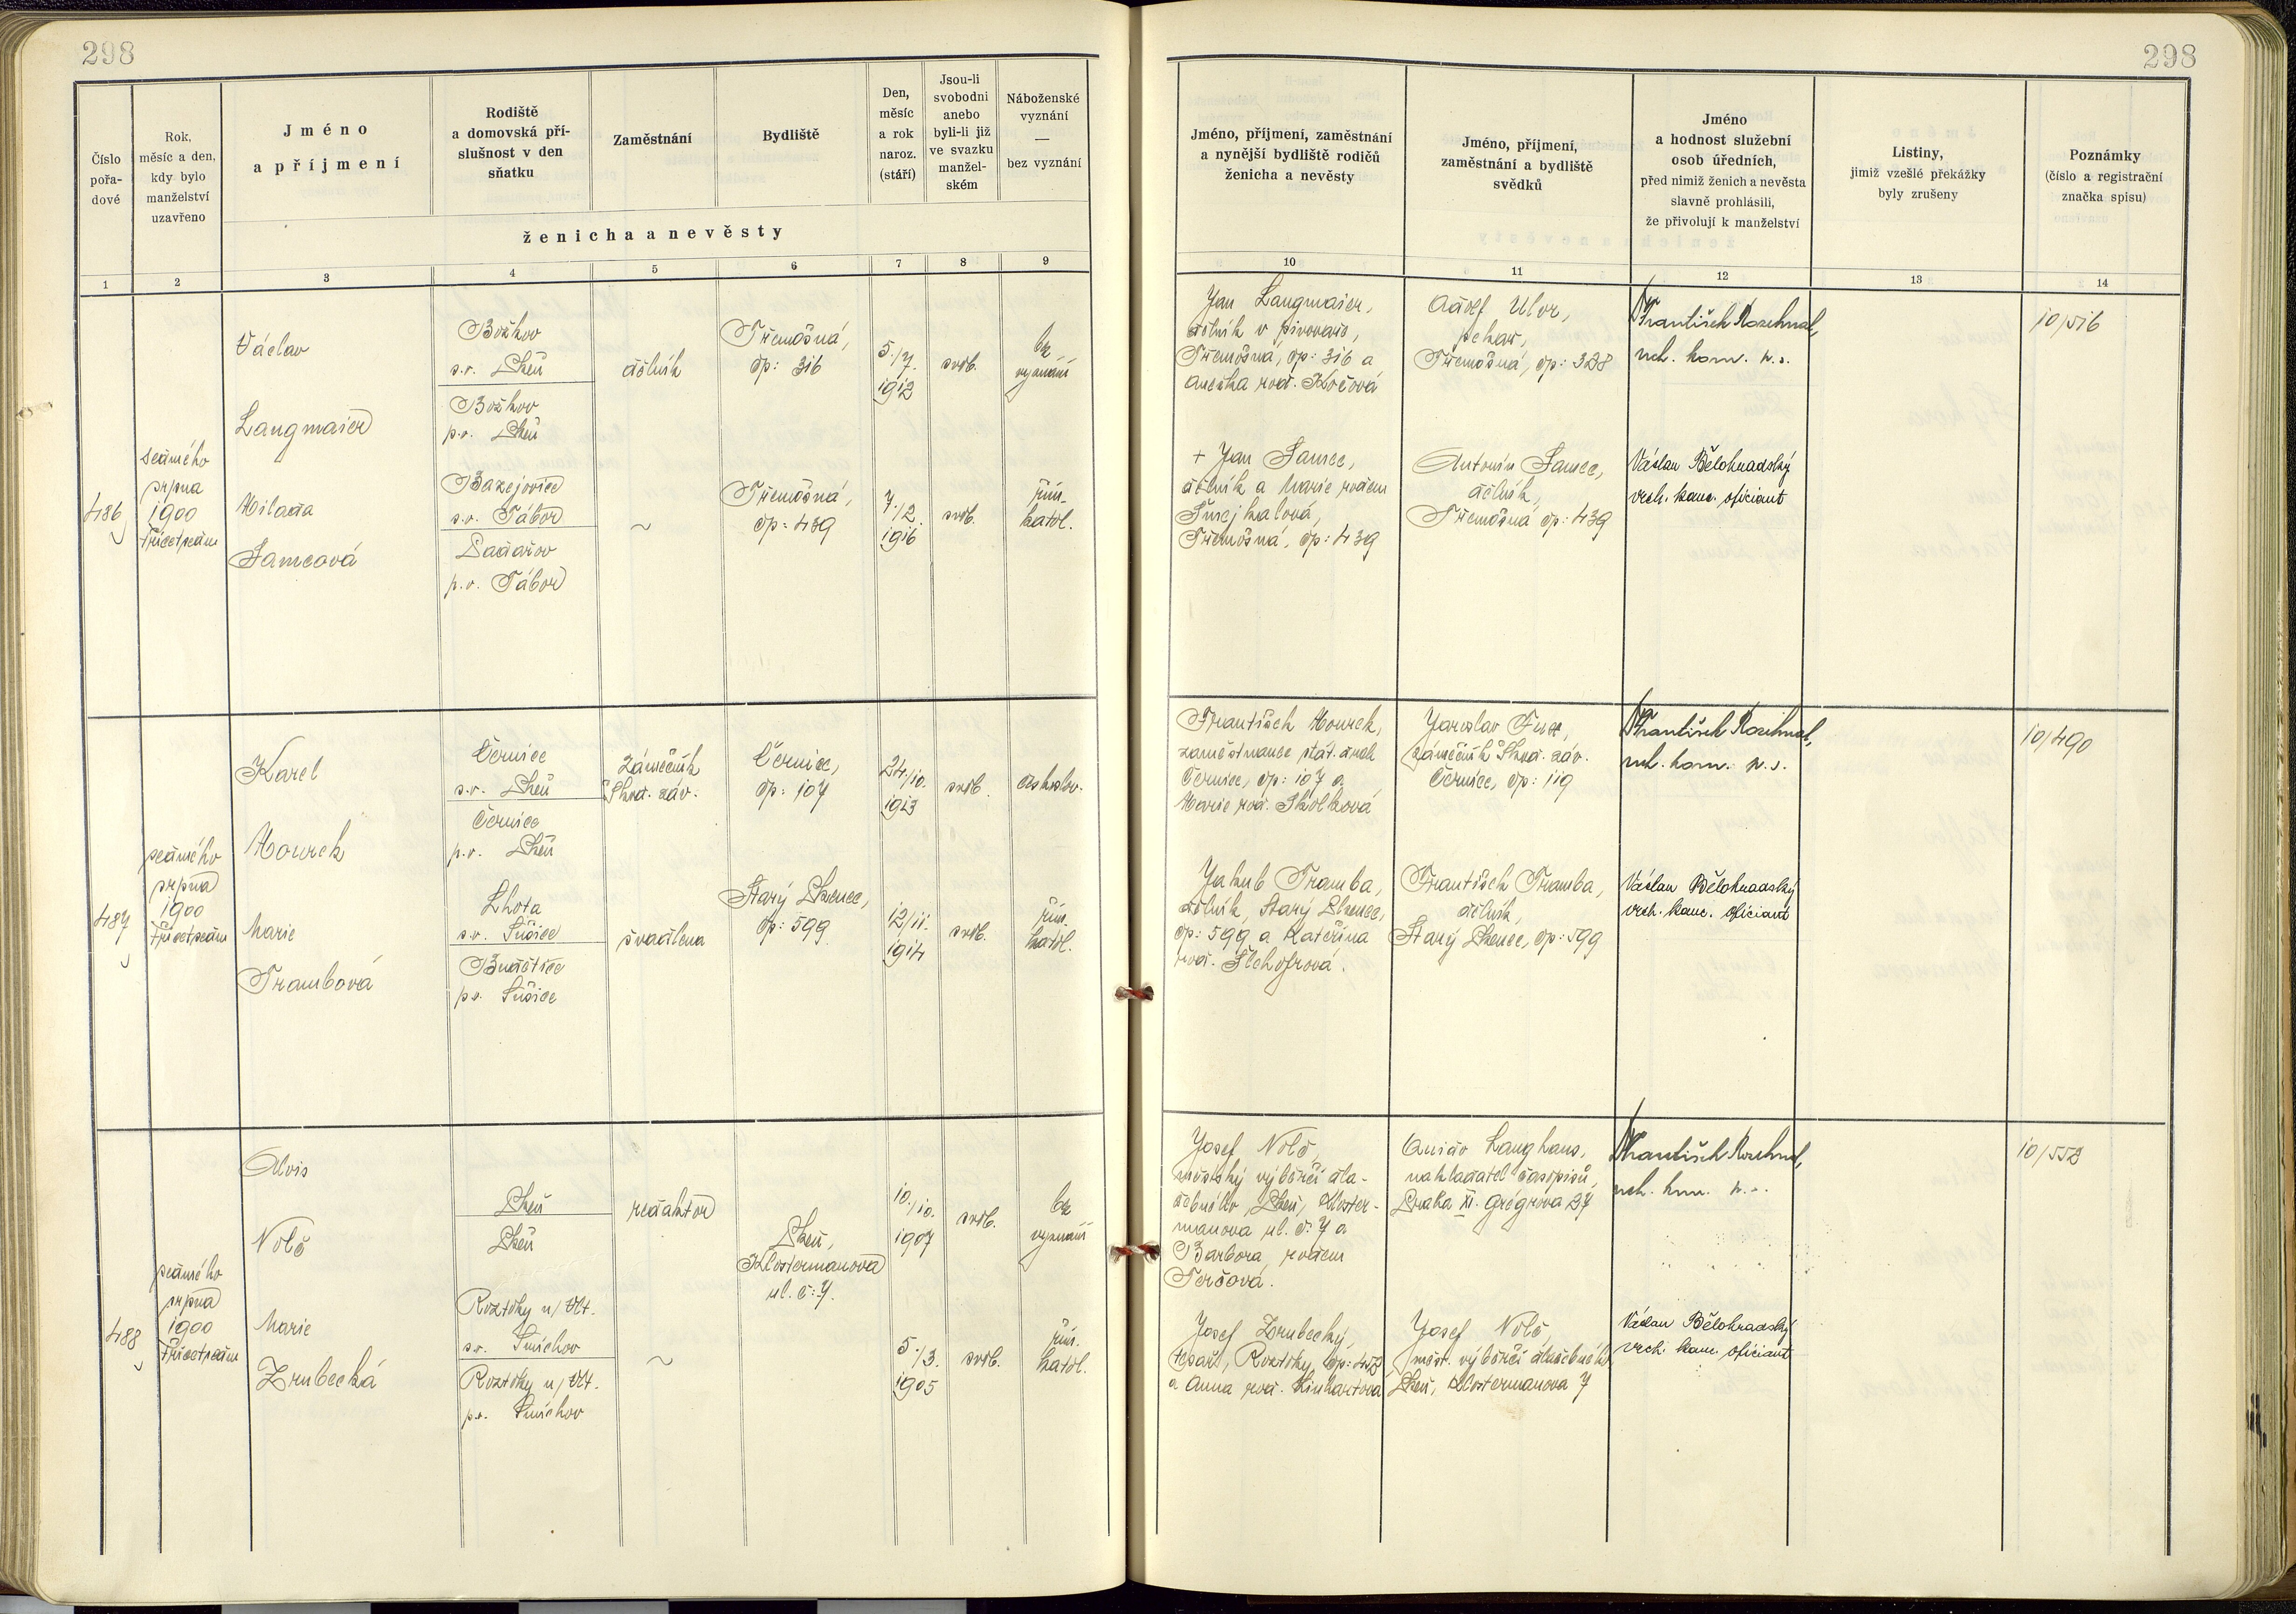 298
298
Číslo pořa-dové
Rok, měsíc a den, kdy bylo manželství uzavřeno
Jméno a příjmení
Rodiště a domovská pří-slušnost v den sňatku
Zaměstnání
Bydliště
Den, měsíc a rok naroz. (stáří)
Jsou-li svobodni anebo byli-li již ve svazku manžel-ském
Náboženské vyznání — bez vyznání
ženicha a nevěsty
Jméno, příjmení, zaměstnání a nynější bydliště rodičů ženicha a nevěsty
Jméno, příjmení, zaměstnání a bydliště svědků
Jméno a hodnost služební osob úředních, před nimiž ženich a nevěsta slavně prohlásili, že přivolují k manželství
Listiny, jimiž vzešlé překážky byly zrušeny
Poznámky (číslo a registrační značka spisu)
1 2 3 4 5 6 7 8 9 10 11 12 13 14
486
sedmého
srpna
1900
třicetsedm
Václav
Langmaier
Božkov
s.o. Plzeň
Božkov
p.o. Plzeň
dělník
Třemošná,
čp: 316
5./7.
1912
svob.
bez
vyznání
Milada
Jamcová
s.o. Tábor
Padařov
p.o. Tábor
~
Třemošná,
čp: 439
7./2.
1916
svob.
řím.
katol.
Jan Langmaier,
dělník v pivovaře,
Třemošná, čp: 316 a
Anežka roz. Kočová
+ Jan Jamce,
dělník a Marie rozen
Třemošná, čp: 439
Adolf
pekař,
Třemošná, čp: 328
Antonín Jamce,
dělník,
Třemošná čp: 439
František
vrch. kom. v. s.
Václav Bělohradský
vrch. kanc. oficiant
10/516
487
sedmého
srpna
1900
třicetsedm
Karel
Hourek
Černice
s.o. Plzeň
Černice
p.o. Plzeň
zámečník
Škod. záv.
Černice,
čp: 107
24./10.
1913
svob.
českoslov.
Marie
Trambová
Lhota
s.o. Sušice
Bnáčtice
p.o. Sušice
švadlena
Starý Plzenec,
čp: 599
12/11.
1914
svob.
řím.
katol.
František Hourek,
zaměstnanec stát. drah
Černice, čp: 107 a
Marie roz. Skolková
Jakub Tramba,
dělník, Starý Plzenec,
čp: 599 a Kateřina
roz.
Jaroslav
zámečník Škod. záv.
Černice, čp: 119
František Tramba,
dělník,
Starý Plzenec, čp: 599
František
vrch. kom. v. s.
Václav Bělohradský
vrch. kanc. oficiant
10/490
488
sedmého
srpna
1900
třicetsedm
Alois
Nolč
Plzeň
Plzeň
redaktor
Plzeň,
Klostermanova
ul. č: 7.
10./10.
1907
svob.
bez
vyznání
Marie
Zrubecká
Roztoky n/Vlt.
s.o. Smíchov
Roztoky n/Vlt.
p.o. Smíchov
~
5./3.
1905
svob.
řím.
katol.
Josef Nolč,
městský výběrčí dla-
žebného Plzeň, Kloster-
manova ul. č: 7 a
Barbora, rozen
Terčová.
Josef Zrubecký,
tesař, Roztoky, čp: 452
a Anna roz.
Langhans,
nakladatel časopisů,
Praha XI. Grégrova 27
Josef Nolč,
měst. výběrčí dlažebného
Plzeň, Klostermanova 7
František
vrch. kom. v. s.
Václav Bělohradský
vrch. kanc. oficiant
10/552